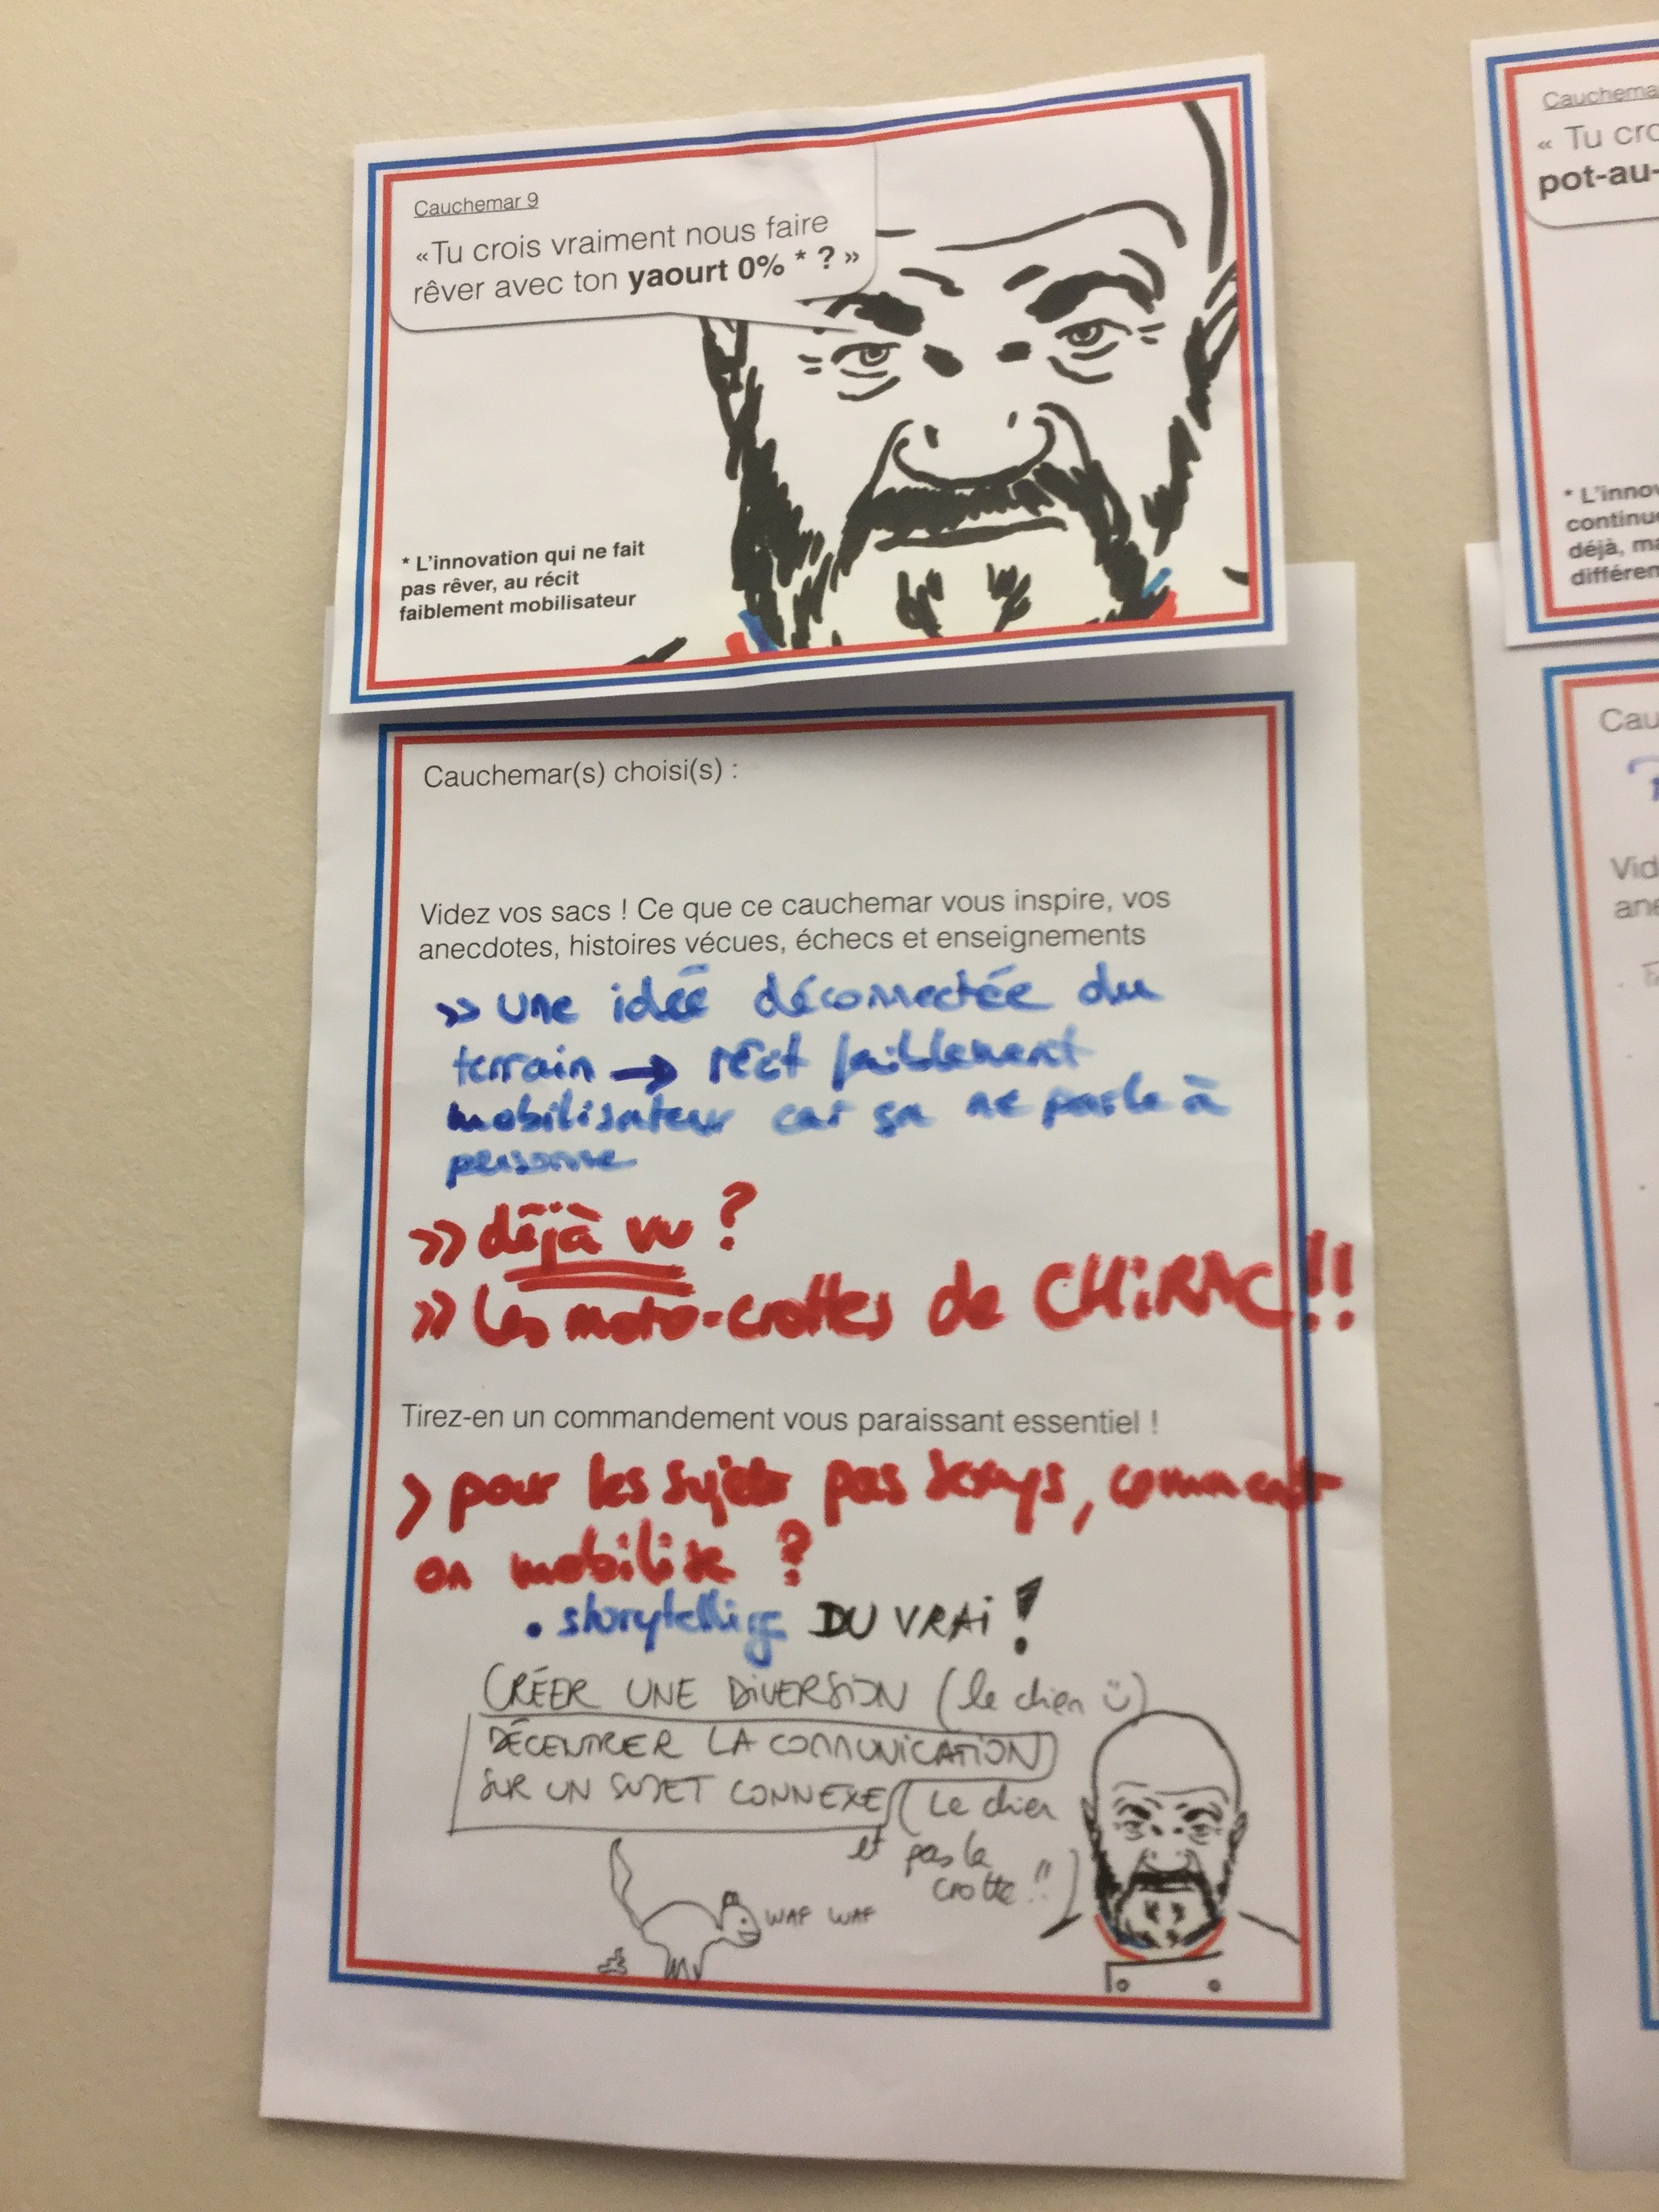 Cauchemar 9
«Tu crois vraiment nous faire
rêver avec ton yaourt 0% * ? »
* L'innovation qui ne fait
pas rêver, au récit
faiblement mobilisateur
Cauchemar(s) choisi(s) :
Videz vos sacs ! Ce que ce cauchemar vous inspire, vos
anecdotes, histoires vécues, échecs et enseignements
>> une idée déconnectée du
terrain → récit faiblement
mobilisateur car ça ne parle à
personne
>> déjà vu ?
>> les moto-crottes de CHiRAC !!
Tirez-en un commandement vous paraissant essentiel !
> pour les sujets pas sexys, comment
on mobilise ?
• storytelling DU VRAi !
CRÉER UNE DiVERSiON (le chien ü)
DÉCENTRER LA COMMUNiCATiON
SUR UN SUJET CONNEXE (Le chien
et pas la
crotte !! )
WAF WAF
« Tu cro
pot-au-
* L'innov
continue
déjà, ma
différen
Cau
Vid
ane